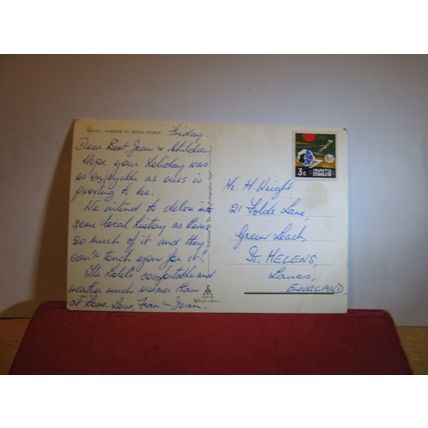 MALTA - INTERIOR OF MOSTA CHURCH
Friday.
Dear Bert, Jean & children
Hope your holiday was
as enjoyable as ours is
proving to be.
We intend to delve into
some local history as there's
so much of it and they
can't touch you for it!
The hotel's comfortable and
weather much warmer than
at home. Love, Fran & Joan.
3c MALTA
Mr. H Wright,
21 Folds Lane,
Green Leach,
St. HELENS,
Lancs,
ENGLAND